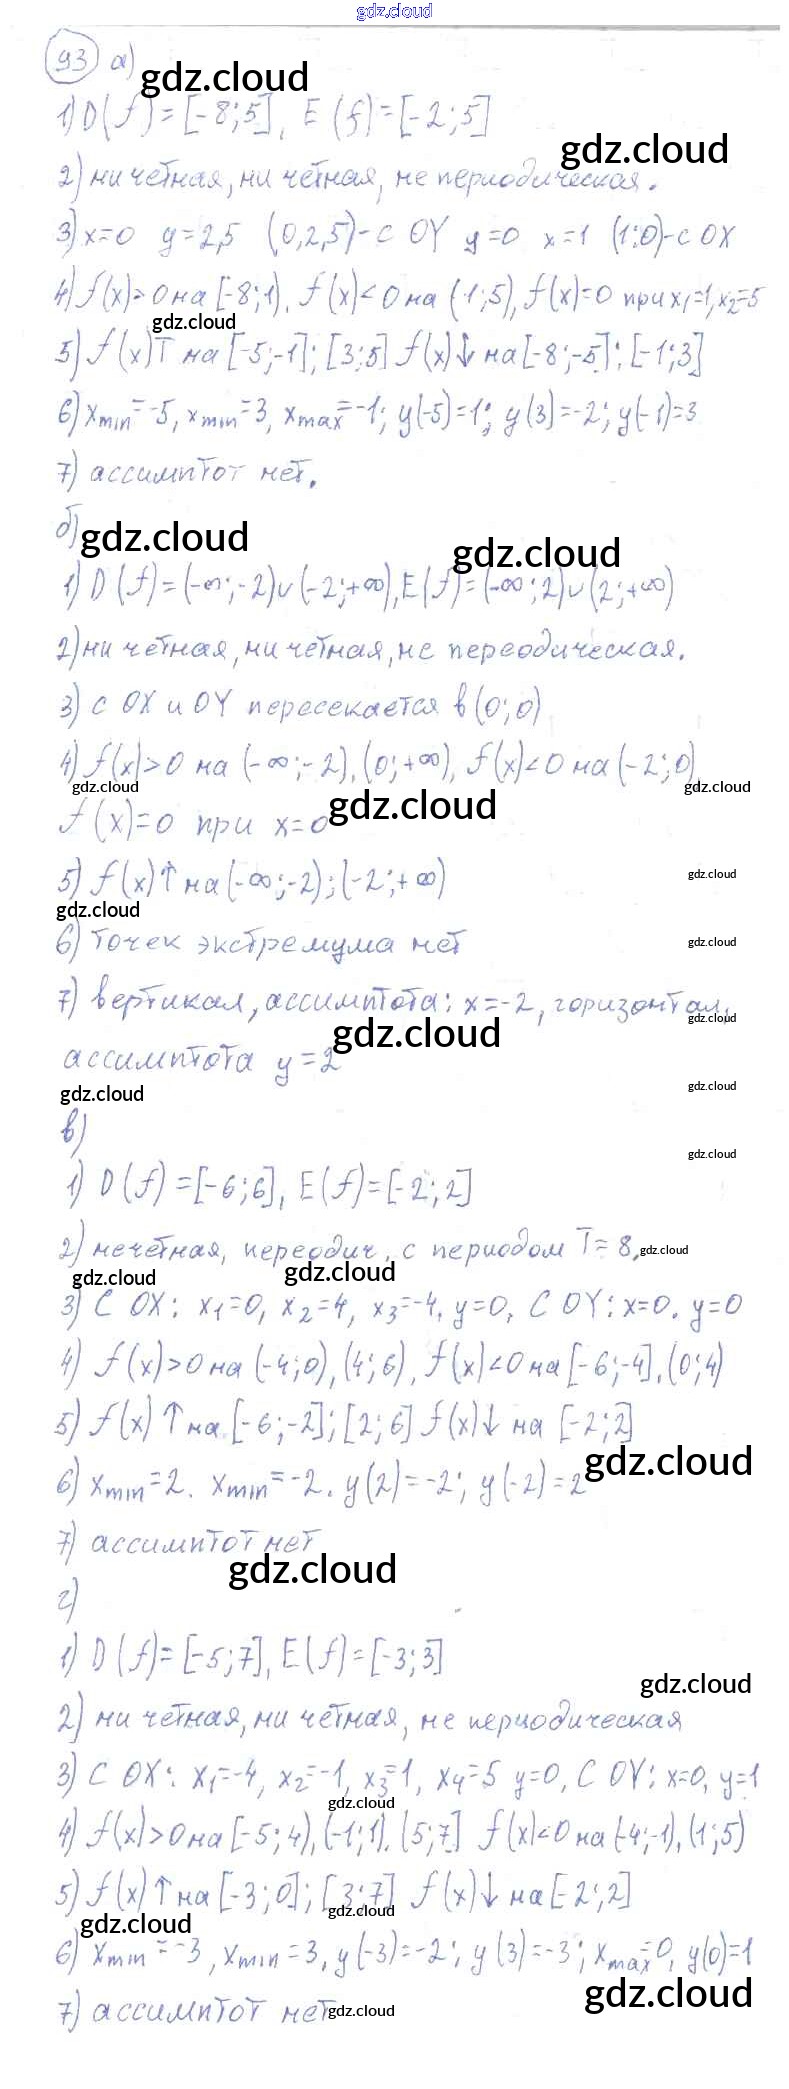 gdz.cloud
93 а) gdz.cloud
1) D(f)=[-8;5], E(f)=[-2;5]
gdz.cloud
2) ни четная, ни четная, не периодическая.
3) x=0 y=2,5 (0,2,5)-с OY y=0 x=1 (1;0)-с OX
4) f(x)>0 на [-8;1), f(x)<0 на (1;5), f(x)=0 при x₁=1, x₂=5
gdz.cloud
5) f(x)↑ на [-5;-1]; [3;5] f(x)↓ на [-8;-5]; [-1;3]
6) xmin=-5, xmin=3, xmax=-1; y(-5)=1; y(3)=-2; y(-1)=3
7) ассимптот нет.
б) gdz.cloud gdz.cloud
1) D(f)=(-∞;-2)∪(-2;+∞), E(f)=(-∞;2)∪(2;+∞)
2) ни четная, ни четная, не переодическая.
3) с OX и OY пересекается в (0;0)
4) f(x)>0 на (-∞;-2), (0;+∞), f(x)<0 на (-2;0)
gdz.cloud gdz.cloud gdz.cloud
f(x)=0 при x=0
5) f(x)↑ на (-∞;-2); (-2;+∞) gdz.cloud
gdz.cloud
6) точек экстремума нет gdz.cloud
7) вертикал, ассимптота: x=-2, горизонтал,
gdz.cloud gdz.cloud
ассимптота y=2
gdz.cloud gdz.cloud
в)
gdz.cloud
1) D(f)=[-6;6], E(f)=[-2;2]
2) нечетная, переодич. с периодом T=8, gdz.cloud
gdz.cloud gdz.cloud
3) С OX: x₁=0, x₂=4, x₃=-4. y=0, С OY: x=0. y=0
4) f(x)>0 на (-4;0), (4;6), f(x)<0 на [-6;-4], (0;4)
5) f(x)↑ на [-6;-2]; [2;6] f(x)↓ на [-2;2]
gdz.cloud
6) xmin=2. xmin=-2. y(2)=-2; y(-2)=2
7) ассимптот нет
gdz.cloud
г)
1) D(f)=[-5;7], E(f)=[-3;3]
gdz.cloud
2) ни четная, ни четная, не периодическая
3) С OX: x₁=-4, x₂=-1, x₃=1, x₄=5 y=0, С OY: x=0, y=1
gdz.cloud
4) f(x)>0 на [-5;4), (-1;1), (5;7] f(x)<0 на (-4;-1), (1;5)
5) f(x)↑ на [-3;0]; [3;7] f(x)↓ на [-2;2]
gdz.cloud gdz.cloud
6) xmin=-3, xmin=3, y(-3)=-2; y(3)=-3; xmax=0, y(0)=1
gdz.cloud
7) ассимптот нет gdz.cloud